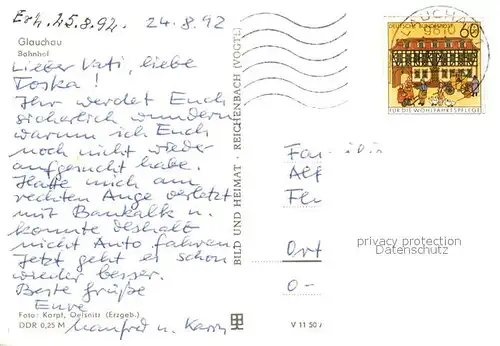 Erh. 25.8.92. 24.8.92
Glauchau
Bahnhof
Lieber Vati, liebe
Toska!
Ihr werdet Euch
sicherlich wundern
warum ich Euch
noch nicht wieder
aufgesucht habe.
Hatte mich am
rechten Auge verletzt
mit Baukalk u.
konnte deshalb
nicht Auto fahren
Jetzt geht es schon
wieder besser.
Beste Grüße
Eure
Manfred u. Karin
Foto: Karpf, Oelsnitz (Erzgeb.)
DDR 0,25 M
BILD UND HEIMAT · REICHENBACH (VOGTL)
V 11 50
GLAUCHAU
9610
DEUTSCHE BUNDESPOST
60
FÜR DIE WOHLFAHRTSPFLEGE
Fam
Alf
Fl
Ort
0-
privacy protection
Datenschutz